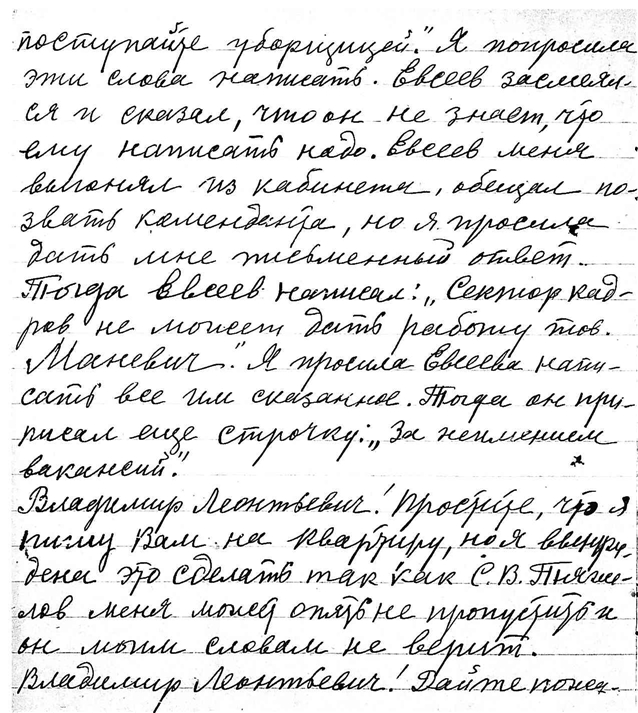 поступайте уборщицей." Я попросила
эти слова написать. Евсеев засмеял-
ся и сказал, что он не знает, что
ему написать надо. Евсеев меня
выгонял из кабинета, обещал по-
звать коменданта, но я просила
дать мне письменный ответ.
Тогда Евсеев написал: „Сектор кад-
ров не может дать работу тов.
Маневич." Я просила Евсеева напи-
сать все им сказанное. Тогда он при-
писал еще строчку: „За неимением
вакансий."
Владимир Леонтьевич! Простите, что я
пишу Вам на квартиру, но я вынуж-
дена это сделать так как С. В.
лов меня может опять не пропустить и
он моим словам не верит.
Владимир Леонтьевич! Дайте пожа-